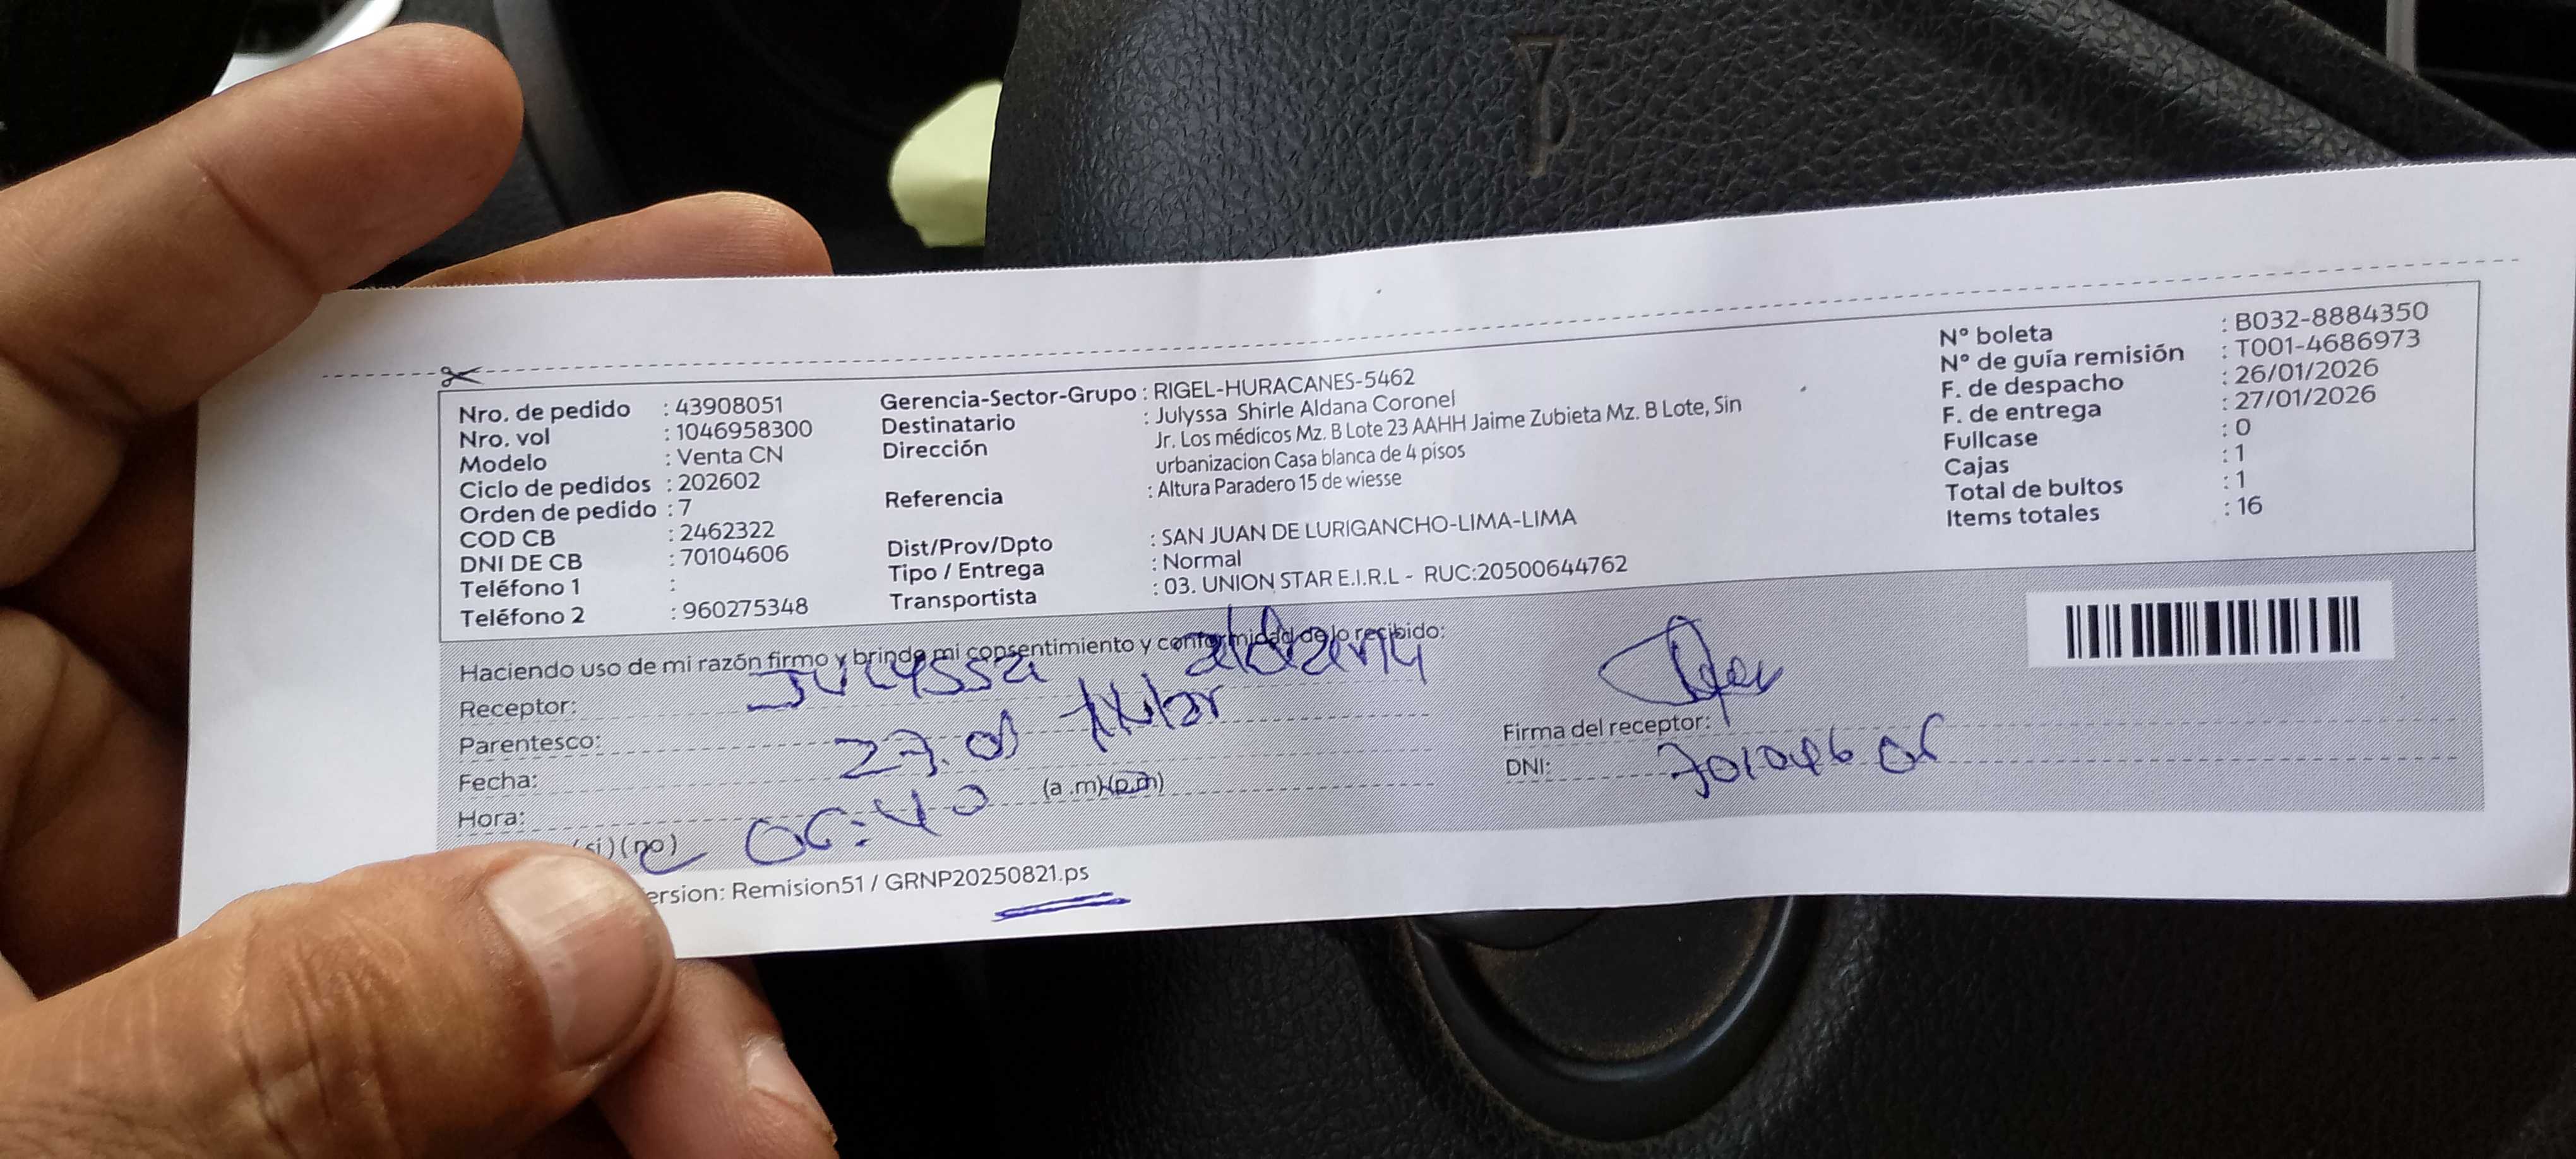 Nro. de pedido : 43908051
Nro. vol : 1046958300
Modelo : Venta CN
Ciclo de pedidos : 202602
Orden de pedido : 7
COD CB : 2462322
DNI DE CB : 70104606
Teléfono 1 :
Teléfono 2 : 960275348
Gerencia-Sector-Grupo : RIGEL-HURACANES-5462
Destinatario : Julyssa Shirle Aldana Coronel
Dirección Jr. Los médicos Mz. B Lote 23 AAHH Jaime Zubieta Mz. B Lote, Sin
urbanizacion Casa blanca de 4 pisos
Referencia : Altura Paradero 15 de wiesse
Dist/Prov/Dpto : SAN JUAN DE LURIGANCHO-LIMA-LIMA
Tipo / Entrega : Normal
Transportista : 03. UNION STAR E.I.R.L - RUC:20500644762
N° boleta : B032-8884350
N° de guía remisión : T001-4686973
F. de despacho : 26/01/2026
F. de entrega : 27/01/2026
Fullcase : 0
Cajas : 1
Total de bultos : 1
Items totales : 16
Haciendo uso de mi razón firmo y brindo mi consentimiento y conformidad de lo recibido:
Receptor: Julyssa aldana
Parentesco: titular
Fecha: 27.01
Hora: 06:40 (a .m)(p.m)
(si)(no)
Firma del receptor:
DNI: 70104606
ersion: Remision51 / GRNP20250821.ps